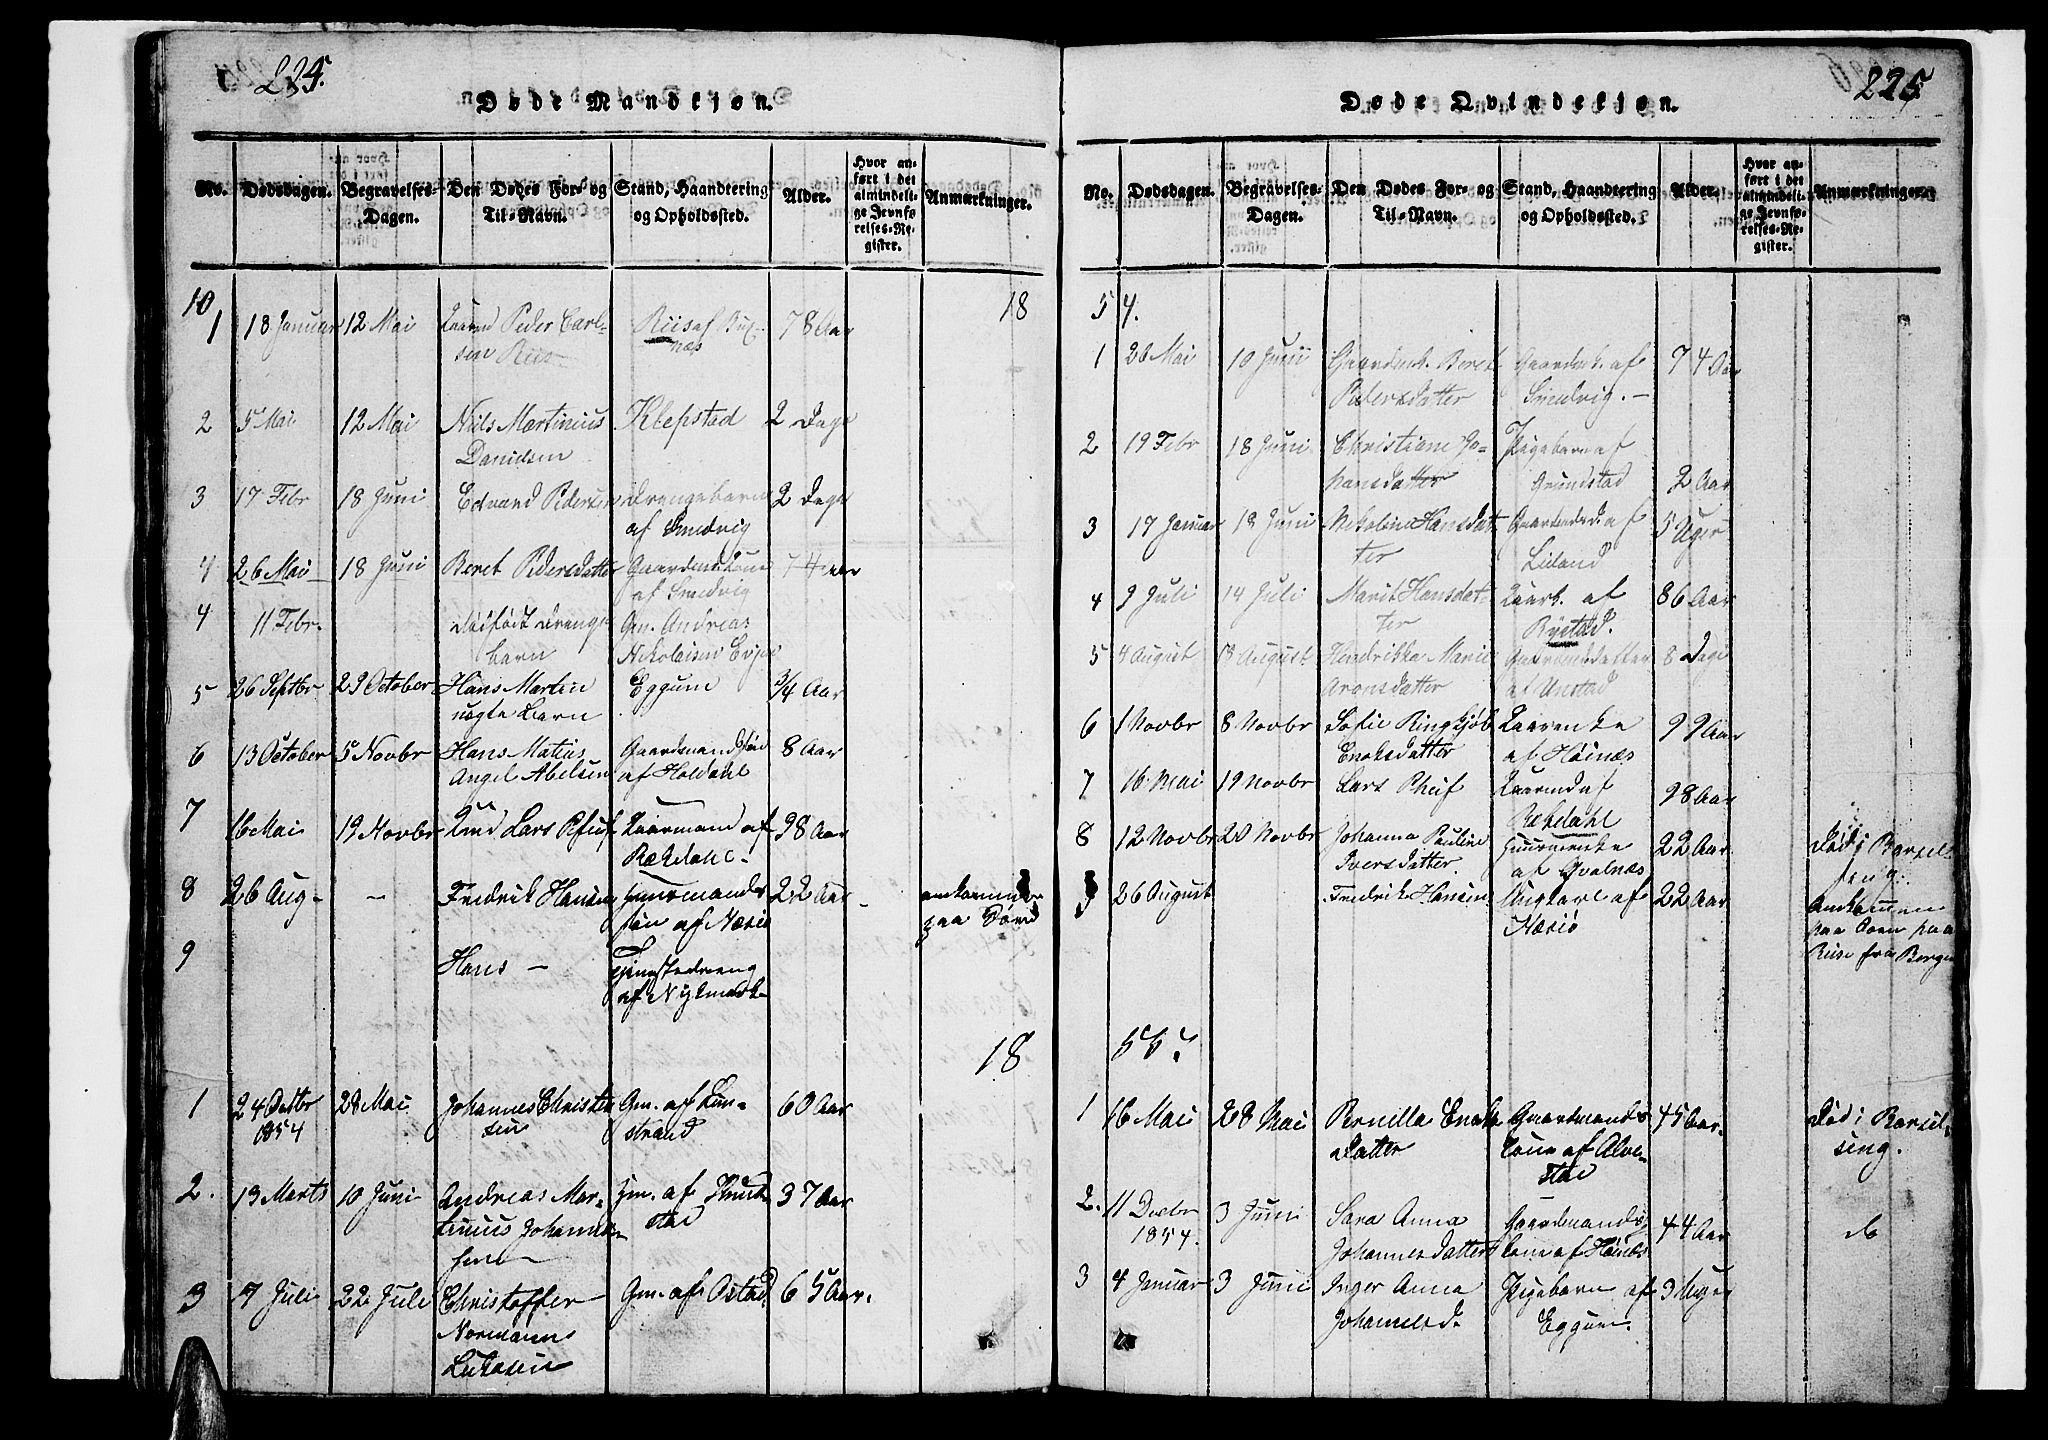 224.
Døde Mandkjøn.
No. Dødsdagen. Begravelses-Dagen. Den Dødes For- og Til-Navn. Stand, Haandtering og Opholdssted. Alder. Hvor anført i det almindelige Jevnførelses-Register. Anmærkninger.
18
1 18 Januar 12 Mai Peder Carlsen Riis Riis af Buxnæs 78 Aar
2 5 Mai 12 Mai Niils Martinius Danielsen Klepstad 2 Dage
3 17 Febr 18 Juni Edvard Pedersen Drengebarn af Smedvig 2 Dage
4 26 Mai 18 Juni Beret Pedersdatter Gaardmdkone af Smedvig 74 Aar
4 11 Febr. dødfødt Drengebarn Gm. Andreas Nikolaisen
5 26 Septbr 29 October Hans Martin uægte Barn Eggum 3/4 Aar
6 13 October 5 Novbr Hans Matias Angel Abelsen Gaardmandssøn af Holdahl 8 Aar
7 16 Mai 19 Novbr Lars Kaarmand af 98 Aar
8 26 Aug - - Fredrik Hansen Huusmandssøn af Næsie 22 Aar - omkommen paa Søen
9 Hans - Tjenestedreng af
18
1 24 Octbr 1854 28 Mai Johannes Christensen Gm. af Kunstrand 60 Aar
2. 13 Marts 10 Juni Andreas Martinius Johannessen Hm. af Knutstad 37 Aar
3 7 Juli 22 Juli Christoffer Normann Lukasen Gm. af Ostad 65 Aar.
225
Døde Qvindekjøn.
No. Dødsdagen. Begravelses-Dagen. Den Dødes For- og Til-Navn. Stand, Haandtering og Opholdssted. Alder. Hvor anført i det almindelige Jevnførelses-Register. Anmærkninger.
54.
1 26 Mai 10 Junii Beret Pedersdatter Gaardmk. af Smedvig. - 74 Aar
2 19 Febr 18 Juni Christiane Johansdatter Pigebarn af Grundstad 2 Aar
3 17 Januar 18 Juni Nikoline Hansdatter Gaardmdsd. af Liland 5 Uger
4 9 Juli 14 Juli Marit Hansdatter Kaark. af Rystad. 86 Aar
5 4 August 13 August Hendrikka Marie Aronsdatter Gaardmdsdatter af Unstad 8 Dage
6 1 Novbr 8 Novbr Sofie Ringkjøb Enoksdatter Kaarenke af Høinæs 99 Aar
7 16 Mai 19 Novbr Lars Kaarmd af 98 Aar
8 12 Novbr 20 Novbr Johanna Pauline Iversdatter Huusmenke af Qvalnæs 22 Aar Død i Barselseng.
9 26 August Fredrik Hansen Ungkarl af 22 Aar Omkommen paa Søen paa Reise fra Bergen
55.
1 16 Mai 28 Mai Pernilla Enoksdatter Gaardmandskone af Alvestad 45 Aar. Død i Barselseng.
2. 11 Decbr 1854. 3 Juni Sara Anna Johannesdatter Gaardmandskone af Høinæs 44 Aar do
3 4 Januar 3 Juni Inger Anna Johannesd. Pigebarn af Eggum. 3 Uger